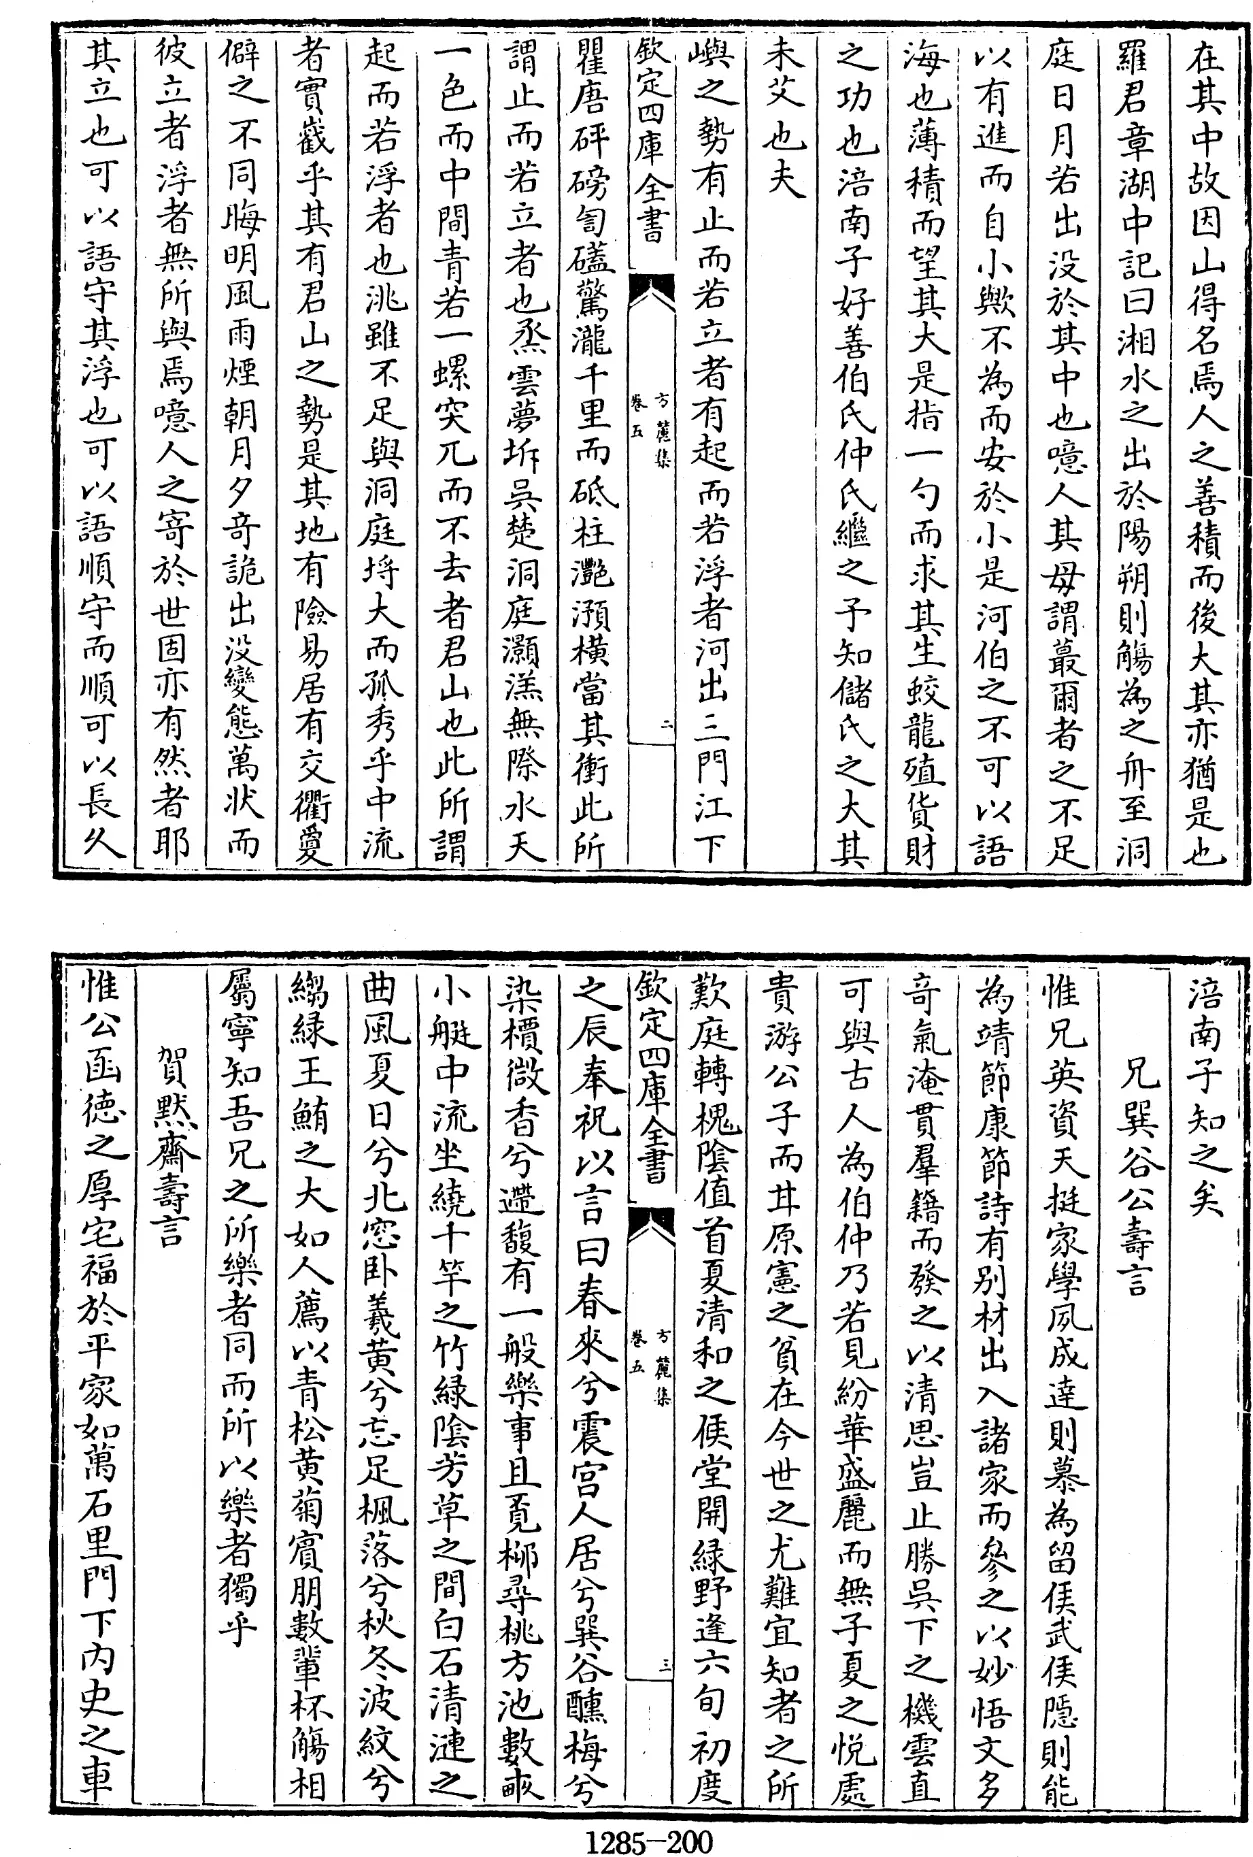 在其中故因山得名焉人之善積而後大其亦猶是也
羅君章湖中記曰湘水之出於陽朔則觴為之舟至洞
庭日月若出没於其中也噫人其毋謂蕞爾者之不足
以有進而自小歟不為而安於小是河伯之不可以語
海也薄積而望其大是指一勺而求其生蛟龍殖貨財
之功也涪南子好善伯氏仲氏繼之予知儲氏之大其
未艾也夫
嶼之勢有止而若立者有起而若浮者河出三門江下
欽定四庫全書
方麓集
卷五
二
瞿唐砰磅訇磕驚瀧千里而砥柱灔澦橫當其衝此所
謂止而若立者也烝雲夢坼吳楚洞庭灝漾無際水天
一色而中間青若一螺突兀而不去者君山也此所謂
起而若浮者也洮雖不足與洞庭埒大而孤秀乎中流
者實嶻乎其有君山之勢是其地有險易居有交衢愛
僻之不同晦明風雨煙朝月夕竒詭出没變態萬狀而
彼立者浮者無所與焉噫人之寄於世固亦有然者耶
其立也可以語守其浮也可以語順守而順可以長久
涪南子知之矣
兄巽谷公壽言
惟兄英資天挺家學夙成達則慕為留侯武侯隱則能
為靖節康節詩有别材出入諸家而參之以妙悟文多
竒氣淹貫羣籍而發之以清思豈止勝吳下之機雲直
可與古人為伯仲乃若見紛華盛麗而無子夏之悅處
貴游公子而甘原憲之貧在今世之尤難宜知者之所
歎庭轉槐陰值首夏清和之候堂開緑野逢六旬初度
欽定四庫全書
方麓集
卷五
三
之辰奉祝以言曰春來兮震宫人居兮巽谷醺梅兮
染櫝微香兮遰馥有一般樂事且覓柳尋桃方池數畝
小艇中流坐繞十竿之竹緑陰芳草之間白石清漣之
曲風夏日兮北窓卧羲黄兮忘足楓落兮秋冬波紋兮
縐緑王鮪之大如人薦以青松黄菊賓朋數輩杯觴相
屬寧知吾兄之所樂者同而所以樂者獨乎
賀默齋壽言
惟公函德之厚宅福於平家如萬石里門下内史之車
1285-200